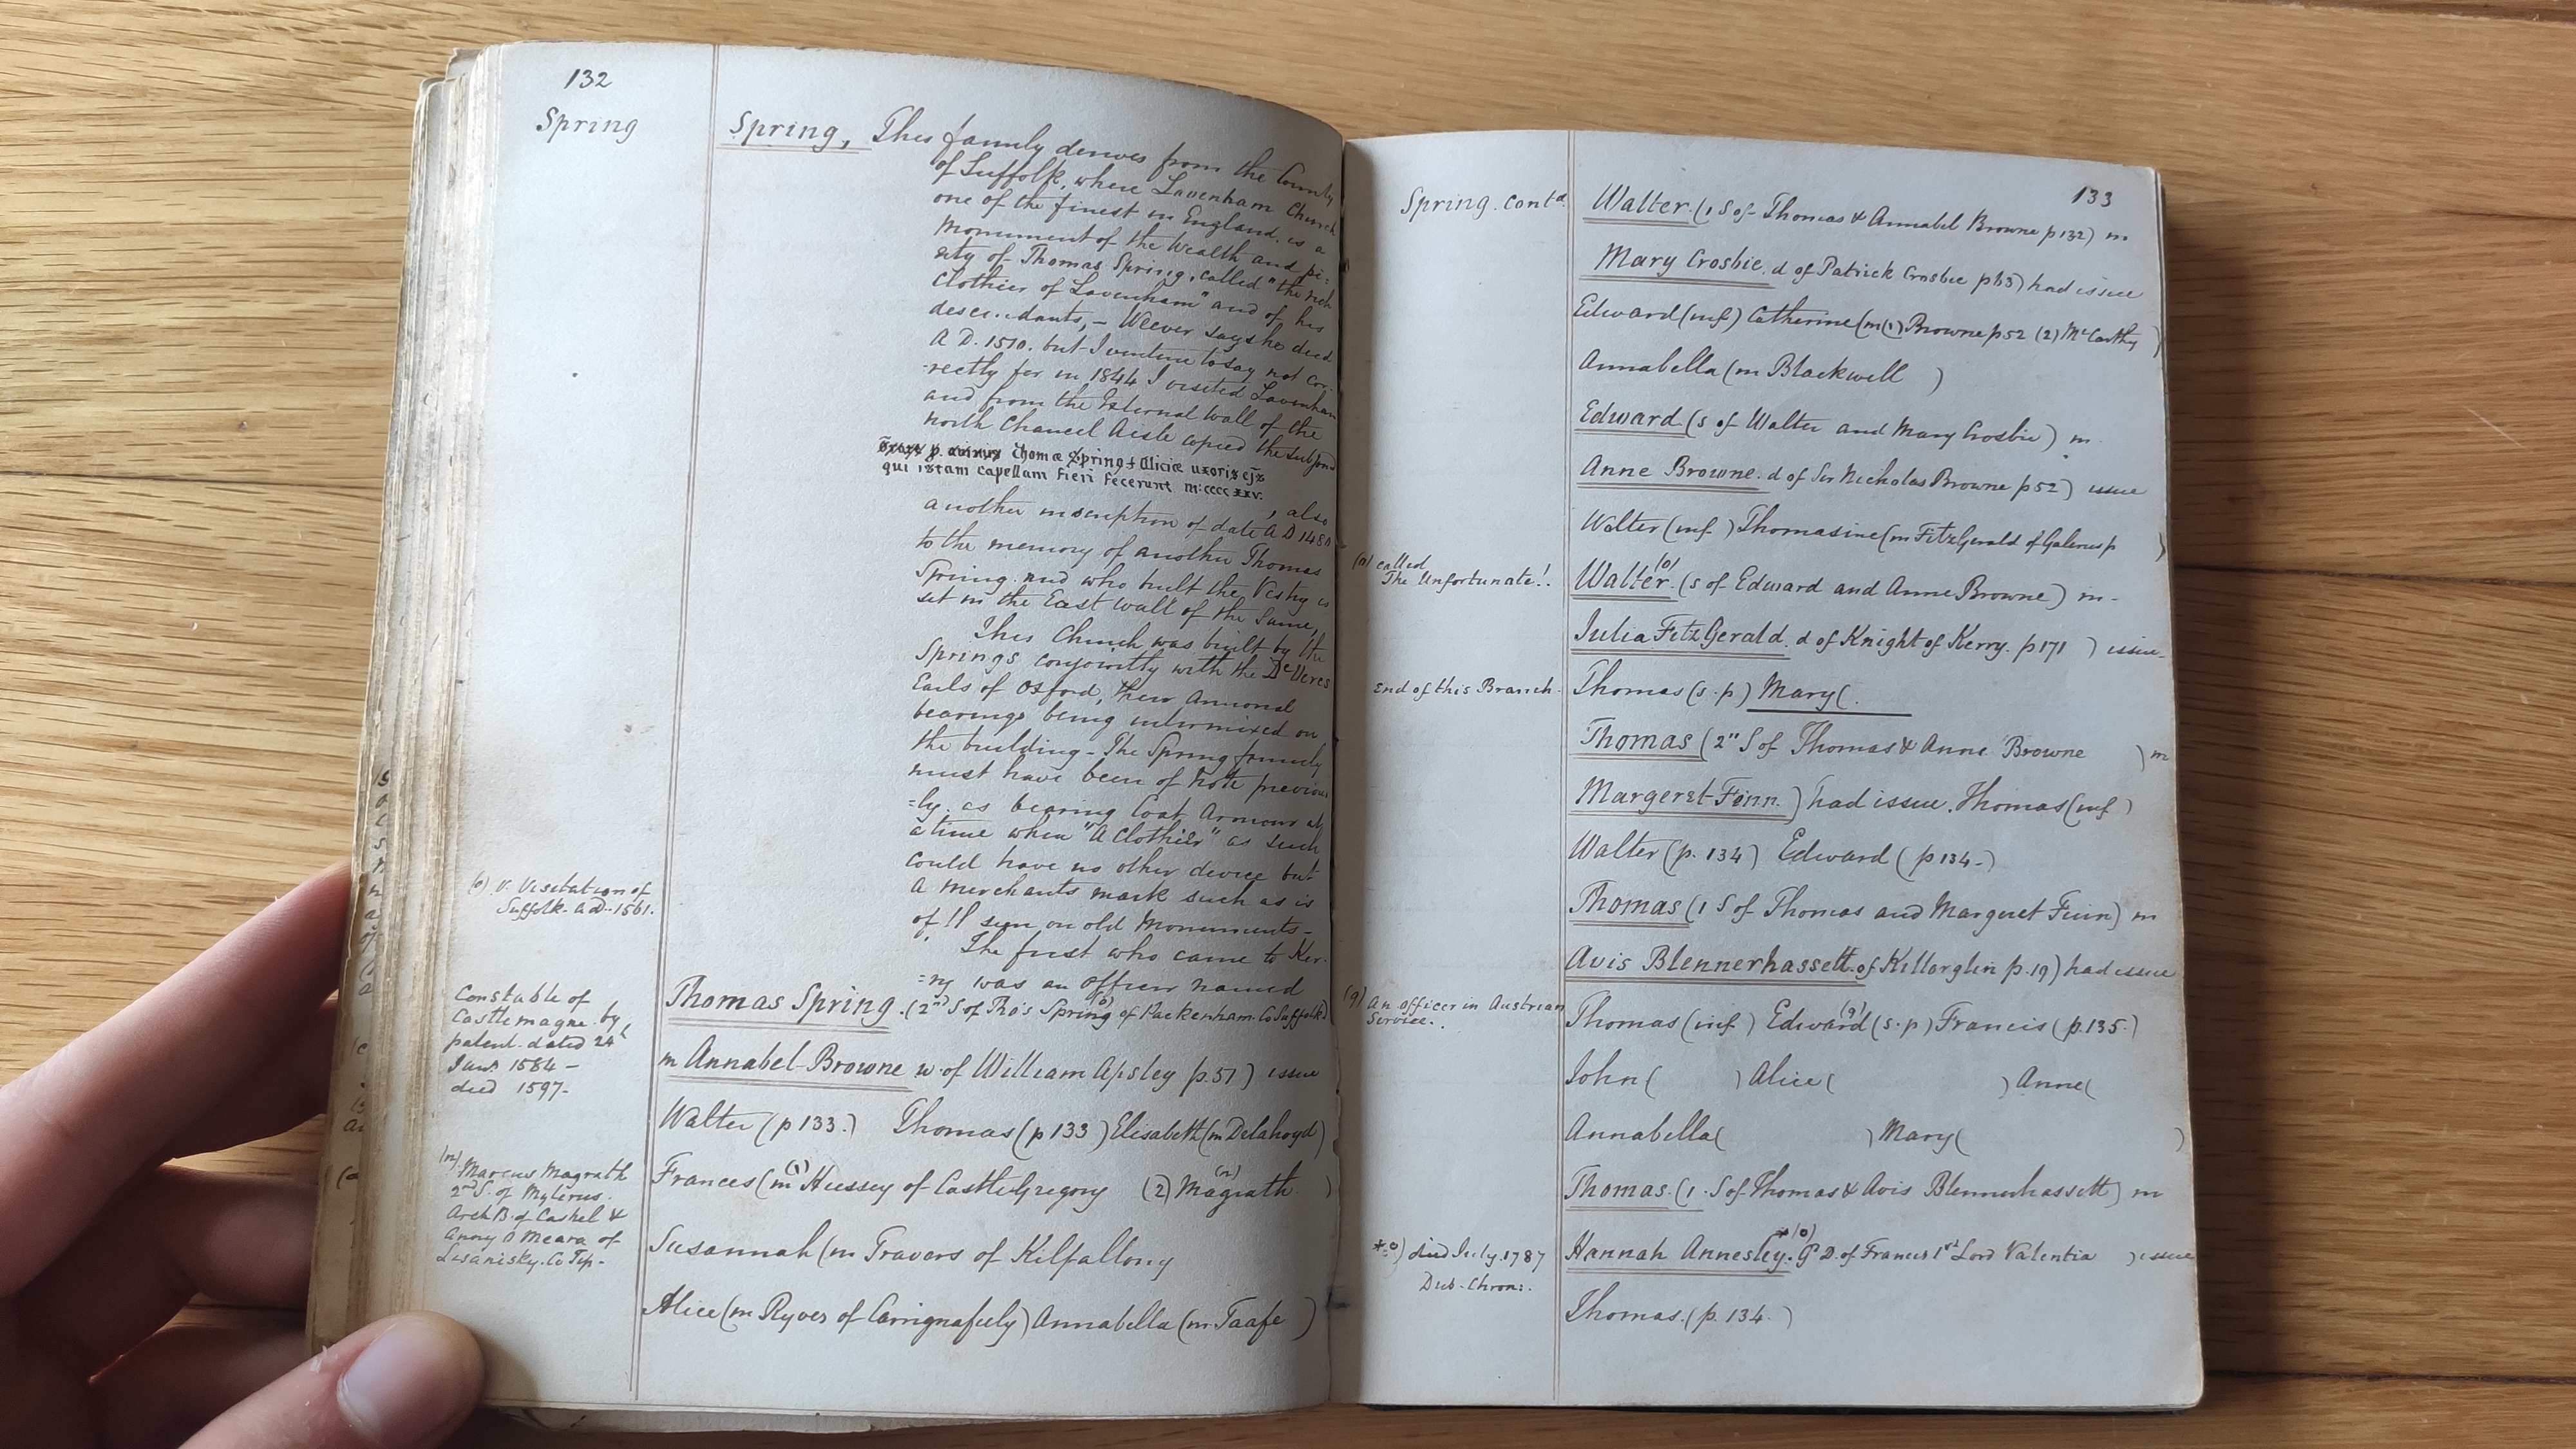 132
Spring
Spring, This family derives from the County
of Suffolk, where Lavenham Church
one of the finest in England, is a
Monument of the Wealth and pi-
ety of Thomas Spring, called "the rich
Clothier of Lavenham" and of his
descendants, - Weever says he died
A.D. 1510. but I venture to say not cor-
-rectly for in 1844 I visited Lavenham
and from the External Wall of the
north Chancel Aisle copied the subjoind
Thomæ Spring & Aliciæ uxoris ejs
qui istam capellam fieri fecerunt m:cccc xxv.
, also
another inscription of date A D 1480
to the memory of another Thomas
Spring and who built the Vestry is
set in the East wall of the Same,
This Church was built by the
Springs conjointly with the De Veres
Earls of Oxford, their Armorial
bearings being intermixed on
the building - The Spring family
must have been of Note previous
=ly. as bearing Coat Armour at
a time when "A Clothier" as such
could have no other device but
a merchants mark such as is
of !! seen on old Monuments -
The first who came to Ker-
=ry was an officer named
(o) V. Visitation of
Suffolk. A D. 1561.
Constable of
Castlemagne by
patent dated 24
Jany. 1584 -
died 1597-
Thomas Spring. (2nd S of Thos Spring (o) of Packenham Co Suffolk)
m Annabel Browne w. of William Apsley p. 51) issue
Walter (p 133.) Thomas (p 133) Elisabeth (m Delahoyd)
(n) Marcus Magrath
2nd S. of Mylerus.
Arch B. of Cashel &
Anny O Meara of
Lisanisky. Co Tip-
Frances (m (1) Hussey of CastleGregory (2) Magrath (n) )
Susannah (m Travers of Kilfallony
Alice (m Ryves of Carrignafeely) Annabella (m Taafe )
133
Spring. contd.
Walter. (1 S of Thomas & Annabel Browne p 132) m
Mary Crosbie. d of Patrick Crosbie p 63) had issue
Edward (inf) Catherine (m (1) Browne p 52 (2) McCarthy )
Annabella (m Blackwell )
Edward (s of Walter and Mary Crosbie) m.
Anne Browne. d of Sir Nicholas Browne p 52) issue
Walter (inf ) Thomasine (m FitzGerald of p )
(o) called
The Unfortunate!.
Walter. (o) (s of Edward and Anne Browne) m -
Julia FitzGerald. d of Knight of Kerry. p 171 ) issue-
End of this Branch.
Thomas (s. p) Mary (.
Thomas (2" S of Thomas & Anne Browne ) m
Margeret Finn. ) had issue. Thomas (inf )
Walter (p. 134) Edward ( p 134-)
Thomas (1 S of Thomas and Margeret Finn) m
Avis Blennerhassett. of Killorglin p. 19) had issue
(q) An officer in Austrian
Service..
Thomas (inf ) Edward (q) (s. p) Francis ( p. 135.)
John ( ) Alice ( ) Anne (
Annabella ( ) Mary ( )
Thomas. (1. S of Thomas & Avis Blennerhassett) m
*o) died July. 1787
Dub. Chron:.
Hannah Annesley. *(o) G D. of Francis 1st Lord Valentia ) issue
Thomas. (p. 134. )